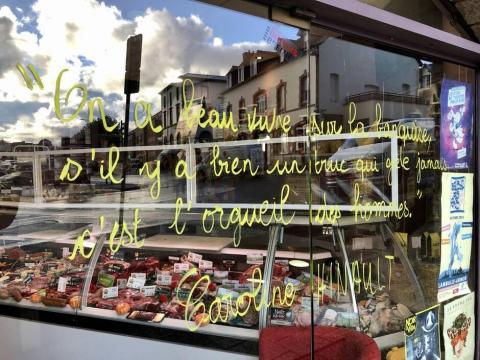 "On a beau vivre sur la banquise,
s'il y a bien un truc qui gèle jamais
c'est l'orgueil des hommes."
Caroline HINAULT